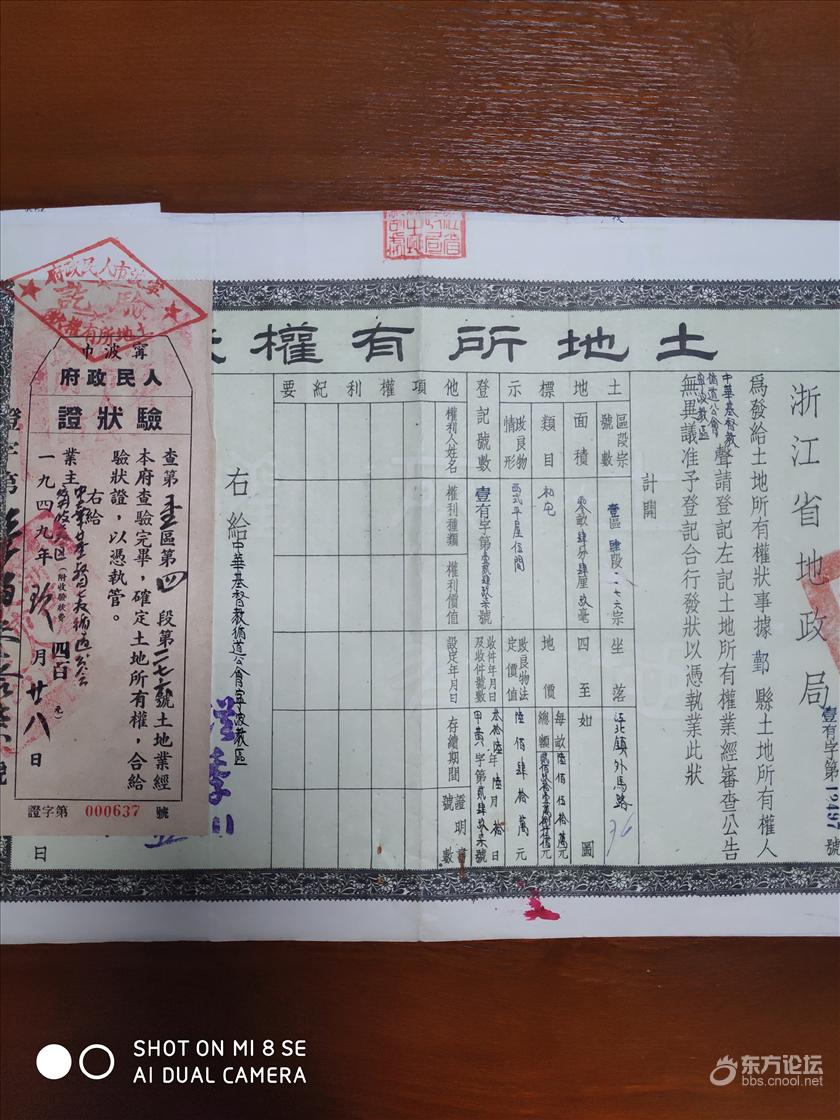 土地所有權
浙江省地政局
壹有字第12497號
為發給土地所有權狀事據鄞縣土地所有權人
中華基督教
循道公會
寧波教區
聲請登記左記土地所有權業經審查公告
無異議准予登記合行發狀以憑執業此狀
計開
土地標示
區段宗號數
壹區肆段二七六宗
坐落
江北鎮外馬路
36
面積
零畝肆分肆厘玖毫
四至
如圖
類目
和宅
地價
每畝陸佰伍拾萬元
總額
改良物情形
西式平屋伍間
改良物法定價值
陸佰肆拾萬元
登記號數
壹有字第
號
收件年月日及收件號數
叁拾陸年陸月拾日
甲黄八字第貳肆玖柒號
他項權利紀要
權利人姓名
權利種類
權利價值
設定年月日
存續期間
證明書號數
右給中華基督教循道公會寧波教區
日
寧波市人民政府
驗訖
土地所有權狀
寧波市
人民政府
驗狀證
查第壹區第四段第二七六號土地業經
本府查驗完畢，確定土地所有權，合給
驗狀證，以憑執管。
右給
業主中華基督教循道公會
寧波教區
(附收驗狀費四百元)
一九四九年玖月廿八日
證字第 000637 號
SHOT ON MI 8 SE
AI DUAL CAMERA
东方论坛
bbs.cnool.net